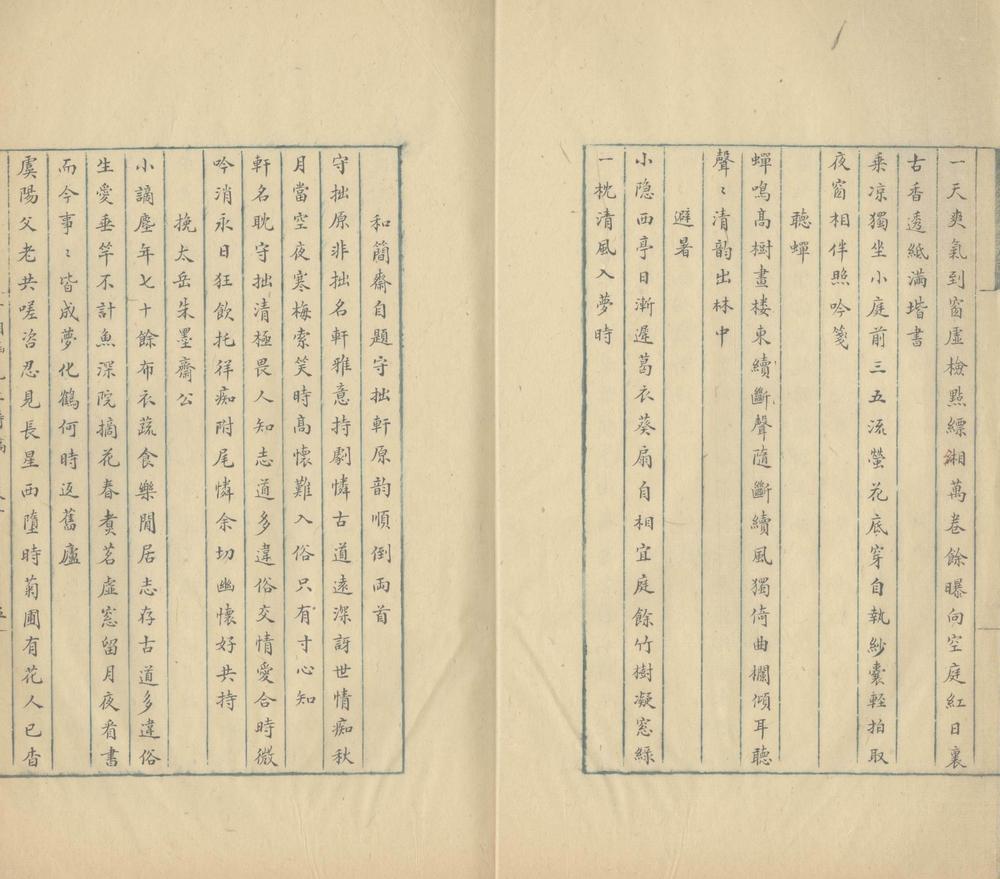 一天爽氣到窗虛檢點縹緗萬卷餘曝向空庭紅日裏
古香透紙满堦書
乘凉獨坐小庭前三五流螢花底穿自執紗囊輕拍取
夜窗相伴照吟箋
聽蟬
蟬鳴髙樹畫楼東續斷聲隨斷續風獨倚曲欄傾耳聽
聲〻清韵出林中
避暑
小隐西亭日漸遲葛衣葵扇自相宜庭餘竹樹凝窓綠
一枕清風入夢時
和簡齋自題守拙軒原韵順倒兩首
守拙原非拙名軒雅意持劇憐古道遠深訝世情痴秋
月當空夜寒梅索笑時髙懷難入俗只有寸心知
軒名耽守拙清極畏人知志道多違俗交情愛合時微
吟消永日狂飲托佯痴附尾憐余切幽懷好共持
挽太岳朱墨齋公
小謫塵年七十餘布衣蔬食樂閒居志存古道多違俗
生愛垂竿不計魚深院摘花春煑茗虛窓留月夜看書
而今事〻皆成夢化鶴何時返舊廬
虞陽父老共嗟咨忍見長星西墮時菊圃有花人已杳